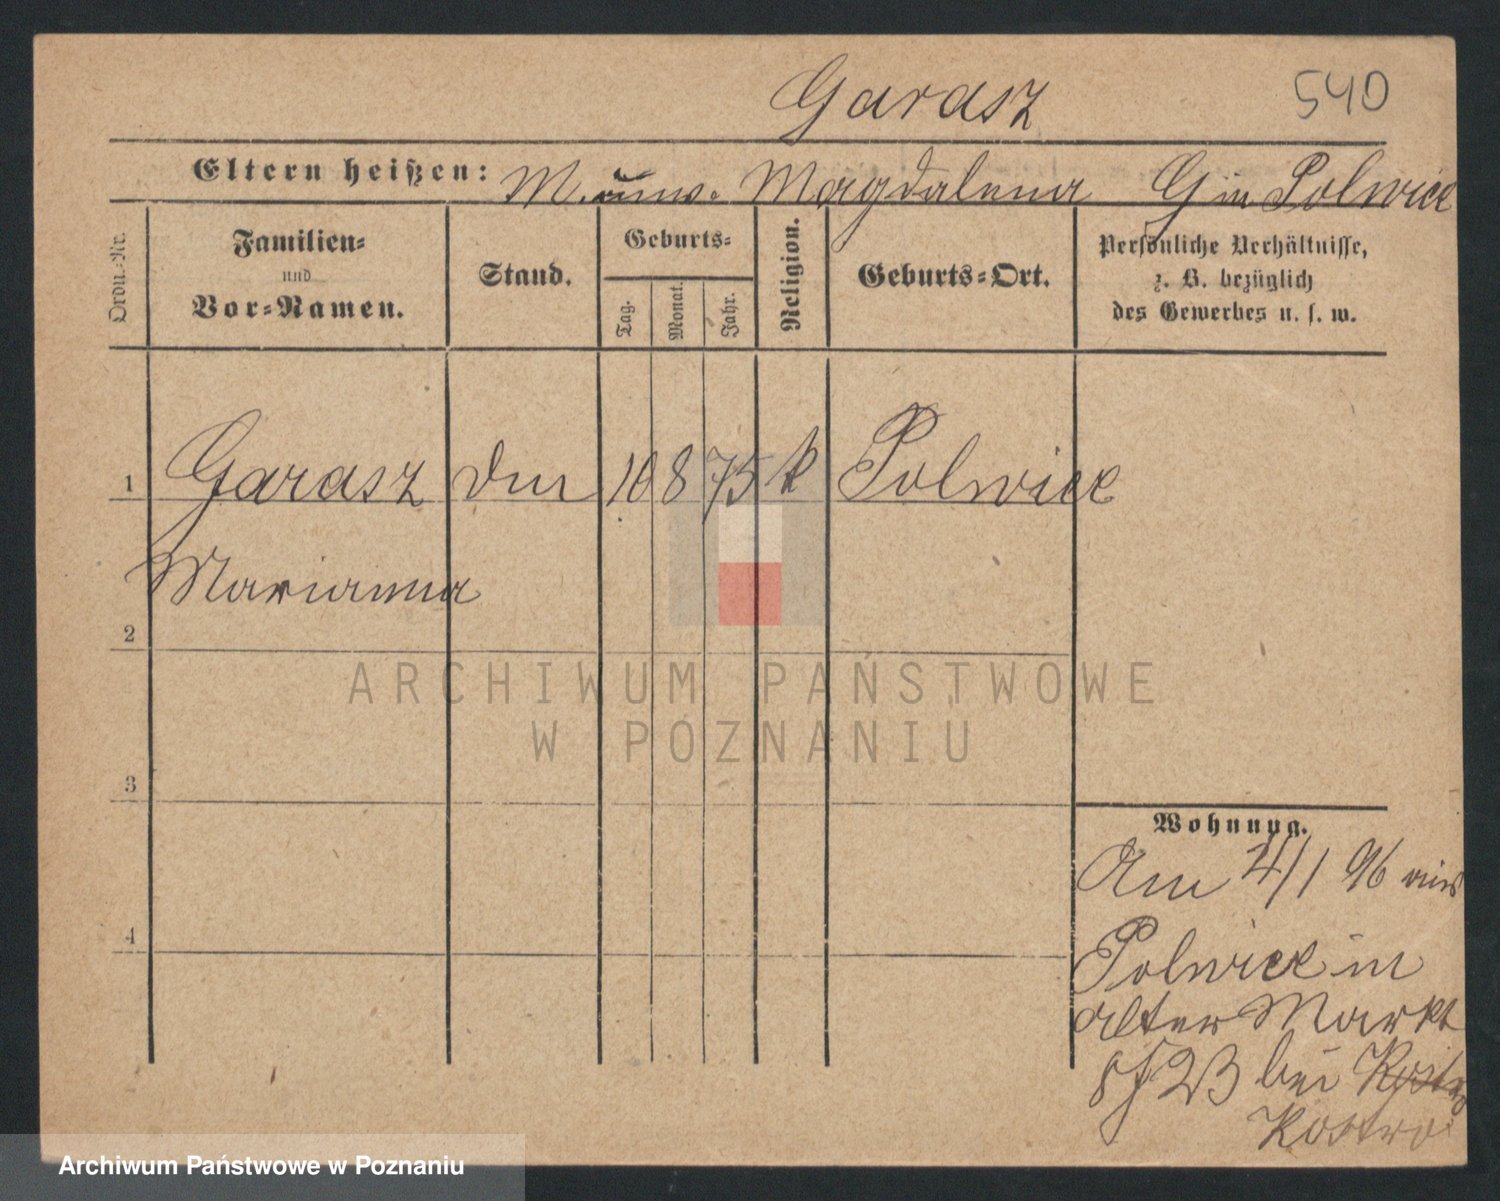 Garasz 540
Eltern heißen: M. unv. Magdalena G in Polwice
Ordn.-Nr.
Familien-
und
Vor-Namen.
Stand.
Geburts-
Tag.
Monat.
Jahr.
Religion.
Geburts-Ort.
Persönliche Verhältnisse,
z. B. bezüglich
des Gewerbes u. s. w.
1 Garasz 10 8 75 k Polwice
Marianna
2
3
4
Wohnung.
Am 2/1 96 aus
Polwice in
Alter Markt
bei
Kostro
ARCHIWUM PAŃSTWOWE
W POZNANIU
Archiwum Państwowe w Poznaniu